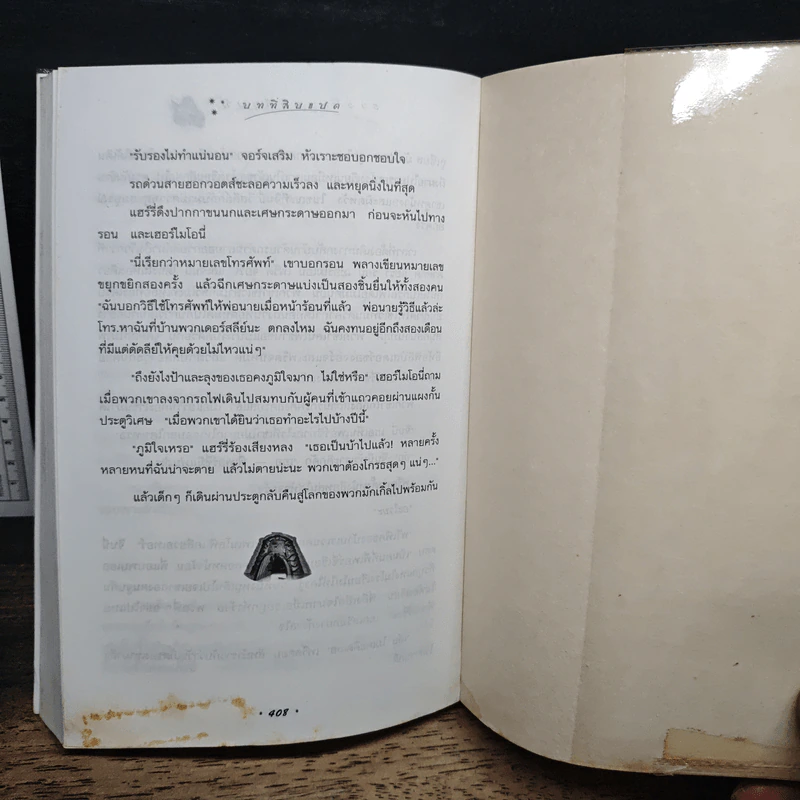 บทที่สิบแปด
"รับรองไม่ทำแน่นอน" จอร์จเสริม หัวเราะชอบอกชอบใจ
รถด่วนสายฮอกวอตส์ชะลอความเร็วลง และหยุดนิ่งในที่สุด
แฮร์รี่ดึงปากกาขนนกและเศษกระดาษออกมา ก่อนจะหันไปทาง
รอน และเฮอร์ไมโอนี่
"นี่เรียกว่าหมายเลขโทรศัพท์" เขาบอกรอน พลางเขียนหมายเลข
ขยุกขยิกสองครั้ง แล้วฉีกเศษกระดาษแบ่งเป็นสองชิ้นยื่นให้ทั้งสองคน
"ฉันบอกวิธีใช้โทรศัพท์ให้พ่อนายเมื่อหน้าร้อนที่แล้ว พ่อนายรู้วิธีแล้วล่ะ
โทร.หาฉันที่บ้านพวกเดอร์สลีย์นะ ตกลงไหม ฉันคงทนอยู่อีกถึงสองเดือน
ที่มีแต่ดัดลีย์ให้คุยด้วยไม่ไหวแน่ๆ"
"ถึงยังไงป้าและลุงของเธอคงภูมิใจมาก ไม่ใช่หรือ" เฮอร์ไมโอนี่ถาม
เมื่อพวกเขาลงจากรถไฟเดินไปสมทบกับผู้คนที่เข้าแถวคอยผ่านแผงกั้น
ประตูวิเศษ "เมื่อพวกเขาได้ยินว่าเธอทำอะไรไปบ้างปีนี้"
"ภูมิใจเหรอ" แฮร์รี่ร้องเสียงหลง "เธอเป็นบ้าไปแล้ว! หลายครั้ง
หลายหนที่ฉันน่าจะตาย แล้วไม่ตายน่ะนะ พวกเขาต้องโกรธสุดๆ แน่ๆ..."
แล้วเด็กๆ ก็เดินผ่านประตูกลับคืนสู่โลกของพวกมักเกิ้ลไปพร้อมกัน
• 408 •